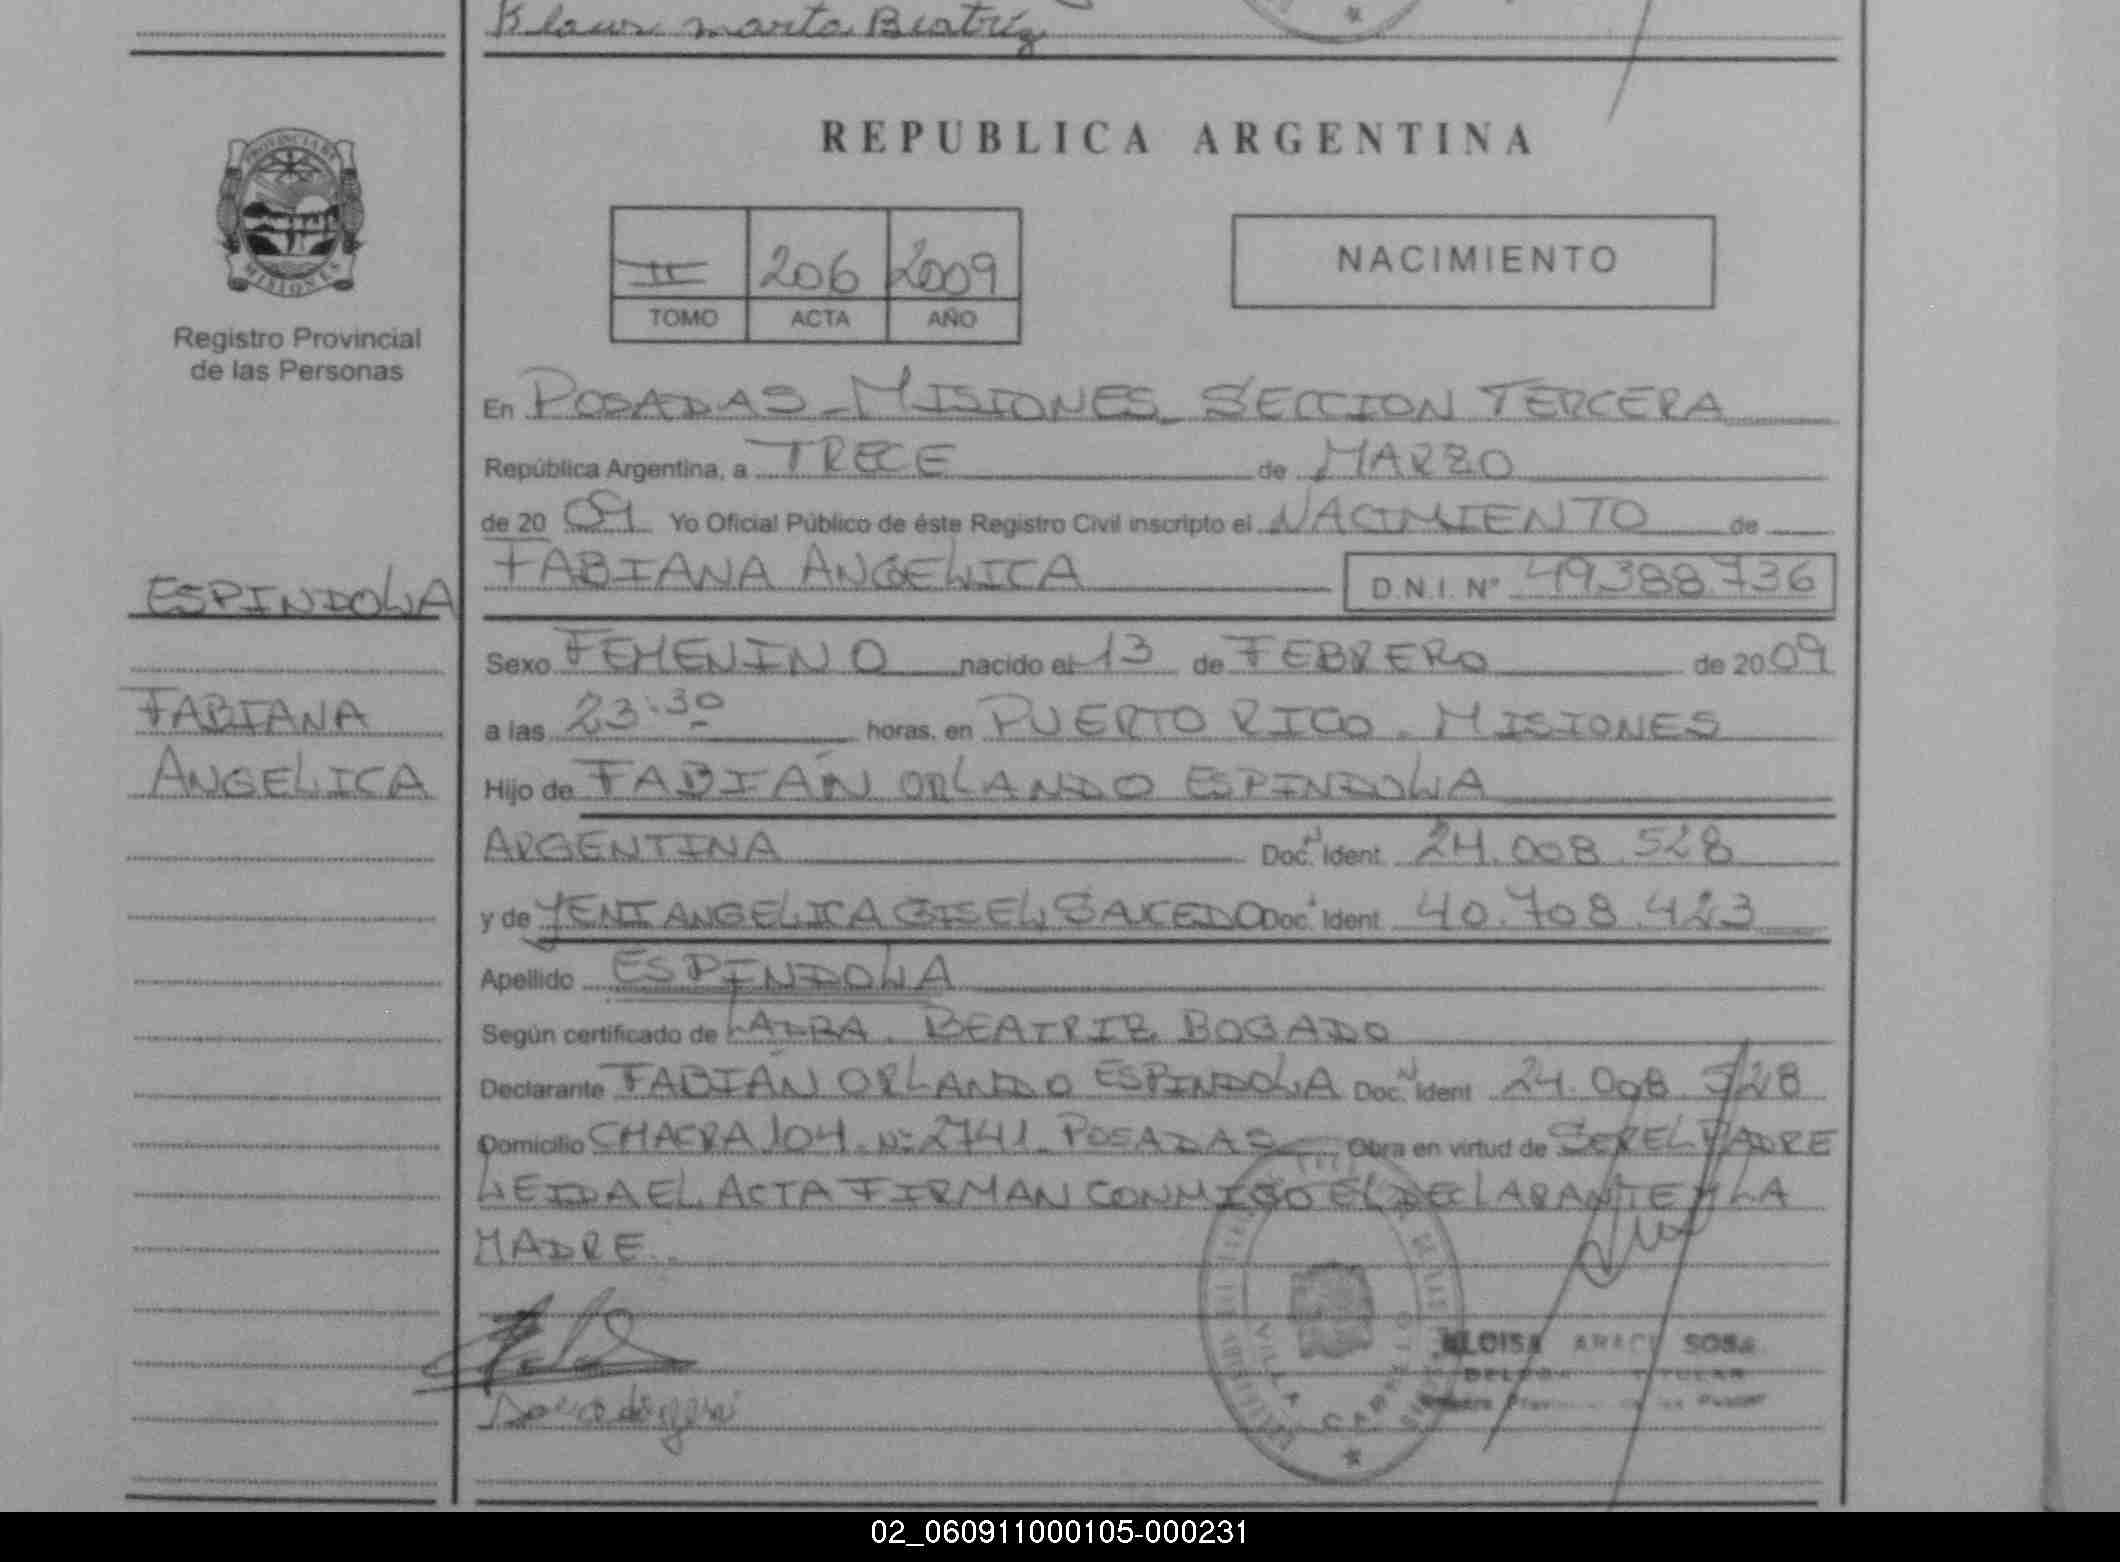 Klaus Marta Beatriz
REPUBLICA ARGENTINA
PROVINCIA DE
MISIONES
Registro Provincial
de las Personas
II 206 2009
TOMO ACTA AÑO
NACIMIENTO
En POSADAS - MISIONES SECCION TERCERA
República Argentina, a TRECE de MARZO
de 20 09 Yo Oficial Público de éste Registro Civil inscripto el NACIMIENTO de
FABIANA ANGELICA D.N.I. Nº 49.388.736
ESPINDOLA
FABIANA
ANGELICA
Sexo FEMENINO nacido el 13 de FEBRERO de 20 09
a las 23:30 horas, en PUERTO RICO. MISIONES
Hijo de FABIÁN ORLANDO ESPINDOLA
ARGENTINA Doc. Ident 24.008.528
y de YENI ANGELICA GISEL SAUCEDO Doc. Ident 40.708.423
Apellido ESPINDOLA
Según certificado de BEATRIZ BOGADO
Declarante FABIÁN ORLANDO ESPINDOLA Doc. Ident 24.008.528
Domicilio CHACRA 104. Nº 2741. POSADAS Obra en virtud de SER EL PADRE
LEIDA EL ACTA FIRMAN CONMIGO EL DECLARANTE Y LA
MADRE.
VILLA CABELLO
ELOISA ARACI SOSA
TITULAR
02_060911000105-000231